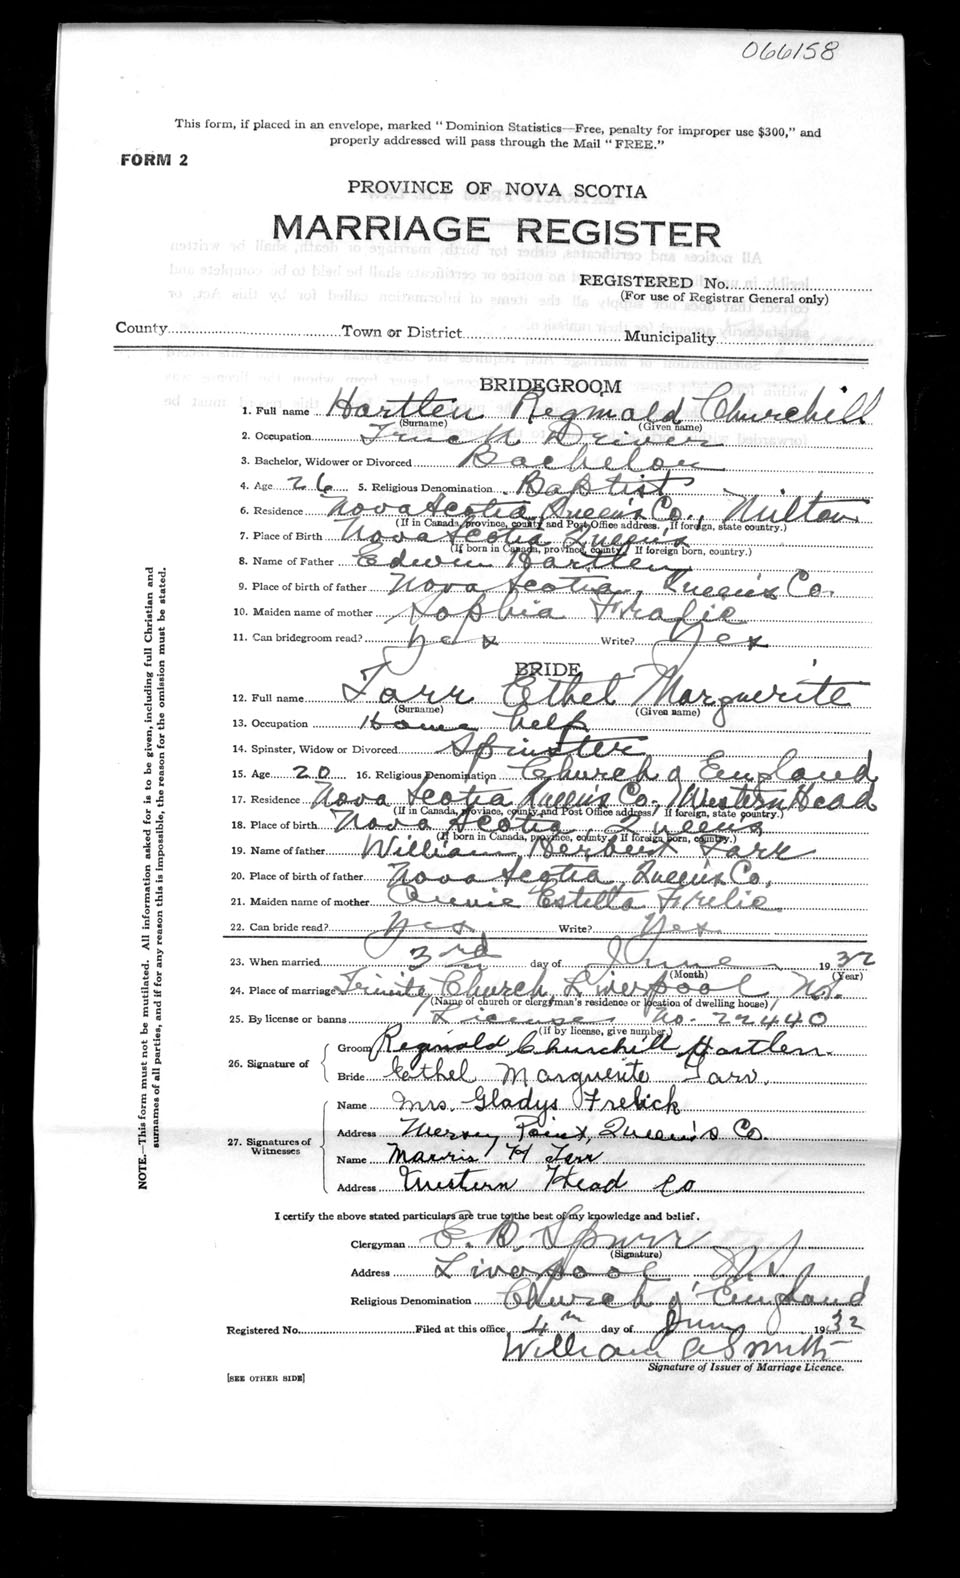 066158
This form, if placed in an envelope, marked "Dominion Statistics—Free, penalty for improper use $300," and
properly addressed will pass through the Mail "FREE."
FORM 2
PROVINCE OF NOVA SCOTIA
MARRIAGE REGISTER
REGISTERED No.
(For use of Registrar General only)
County Town or District Municipality
BRIDEGROOM
1. Full name Hartlen Reginald Churchill
(Surname) (Given name)
2. Occupation Truck Driver
3. Bachelor, Widower or Divorced Bachelor
4. Age 26 5. Religious Denomination Baptist
6. Residence Nova Scotia Queen's Co., Milton
(If in Canada, province, county and Post Office address. If foreign, state country.)
7. Place of Birth Nova Scotia Queen's
(If born in Canada, province, county. If foreign born, country.)
8. Name of Father Edwin Hartlen
9. Place of birth of father Nova Scotia, Queen's Co.
10. Maiden name of mother Sophia Fralic
11. Can bridegroom read? Yes Write? Yes
BRIDE
12. Full name Tarr Ethel Marguerite
(Surname) (Given name)
13. Occupation Home help
14. Spinster, Widow or Divorced Spinster
15. Age 20 16. Religious Denomination Church of England
17. Residence Nova Scotia Queen's Co., Western Head
(If in Canada, province, county and Post Office address. If foreign, state country.)
18. Place of birth Nova Scotia, Queens
(If born in Canada, province, county. If foreign born, country.)
19. Name of father William Herbert Tarr
20. Place of birth of father Nova Scotia, Queen's Co.
21. Maiden name of mother Annie Estella Frelic
22. Can bride read? Yes Write? Yes
23. When married 3rd day of June 1932
(Month) (Year)
24. Place of marriage Trinity Church, Liverpool N.S.
(Name of church or clergyman's residence or location of dwelling house)
25. By license or banns License No. 22440
(If by license, give number)
26. Signature of
Groom Reginald Churchill Hartlen.
Bride Ethel Marguerite Tarr.
27. Signatures of Witnesses
Name Mrs. Gladys Frelick
Address Mersey Point, Queen's Co.
Name Marris H Tarr
Address Western Head Co
I certify the above stated particulars are true to the best of my knowledge and belief.
Clergyman E. B. Spurr
(Signature)
Address Liverpool N.S.
Religious Denomination Church of England
Registered No. Filed at this office 4th day of June 1932
William A Smith
Signature of Issuer of Marriage Licence.
[SEE OTHER SIDE]
NOTE.—This form must not be mutilated. All information asked for is to be given, including full Christian and
surnames of all parties, and if for any reason this is impossible, the reason for the omission must be stated.